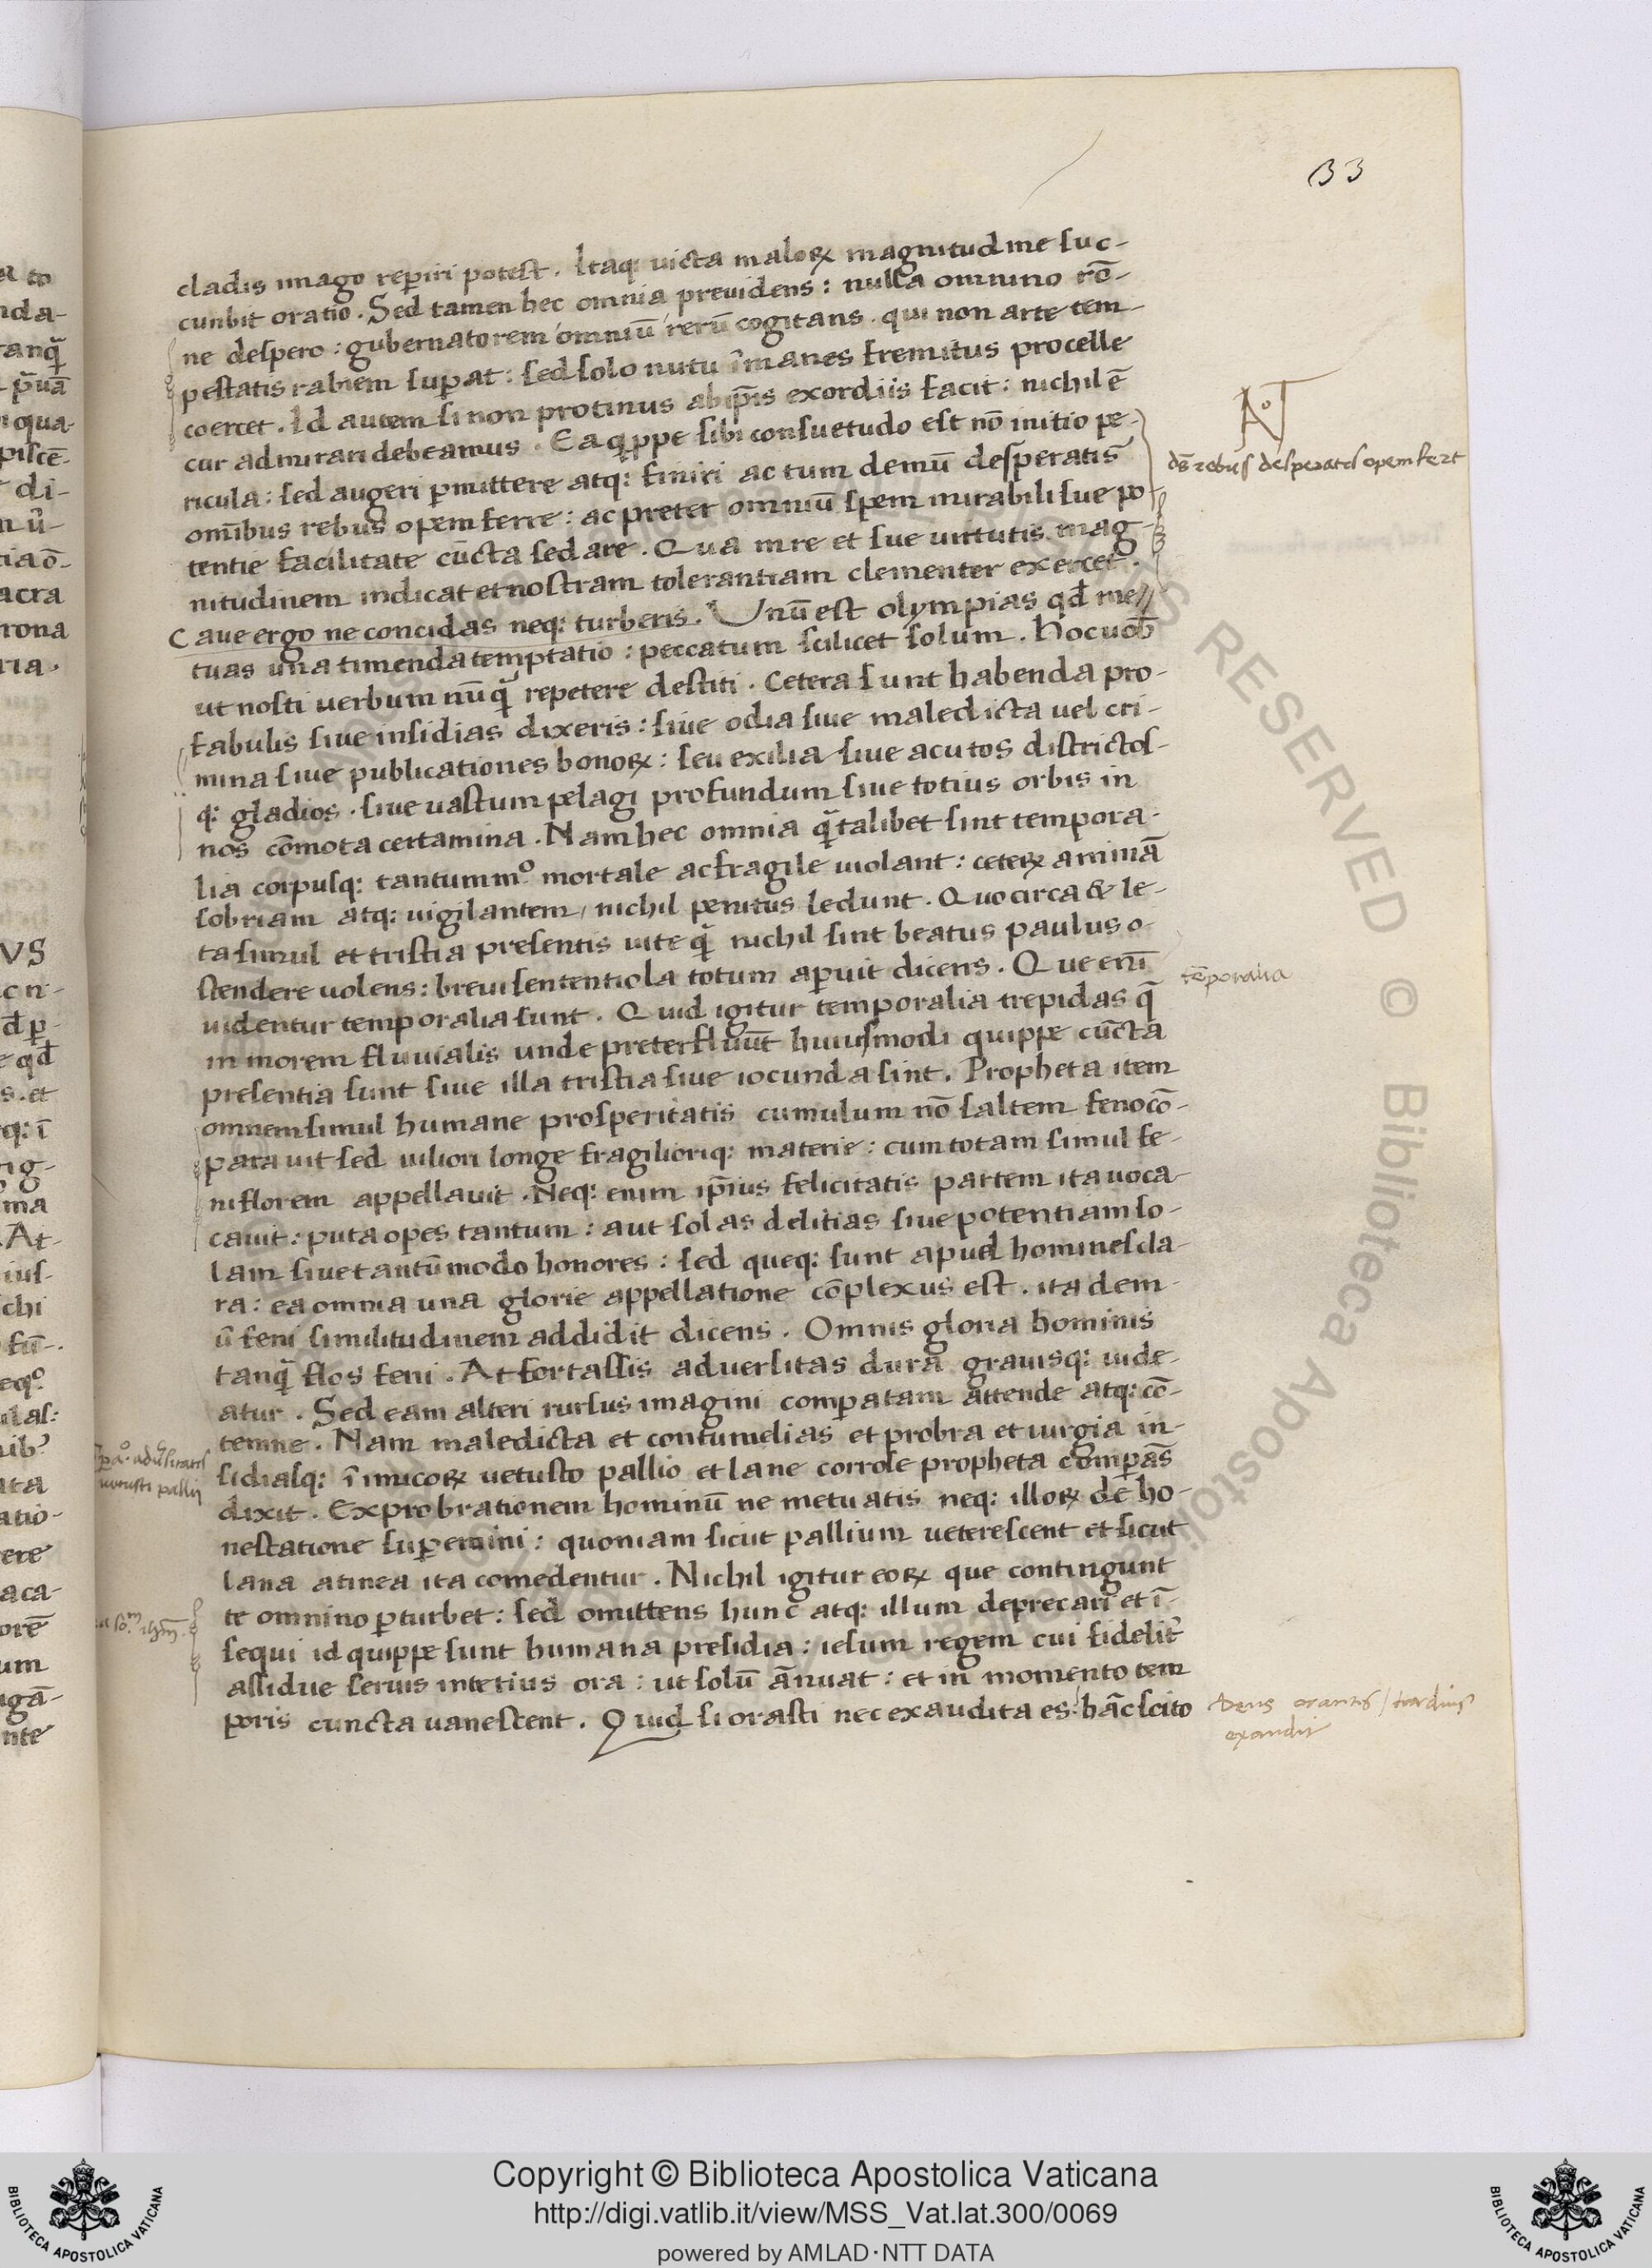 33
cladis imago reperiri potest. Itaq: uicta maloꝝ magnitudine suc-
cunbit oratio. Sed tamen hec omnia preuidens: nulla omnino rõ-
ne despero: gubernatorem omniũ rerũ cogitans. qui non arte tem-
pestatis rabiem suꝑat: sed solo nutu ĩmanes fremitus procelle
coercet. Id autem si non protinus ab ip̃is exordiis facit: nichil ẽ
cur admirari debeamus. Ea q̃ppe sibi consuetudo est nõ initio pe-
ricula: sed augeri ꝑmittere atq: finiri ac tum demũ desperatis
om̃ibus rebus opem ferre: ac preter omniũ spem mirabili sue po-
tentie facilitate cũcta sedare. Qua in re et sue uirtutis mag-
nitudinem indicat et nostram tolerantiam clementer exercet.
Caue ergo ne concidas neq: turberis. Unũ est olympias qđ me-
tuas una timenda temptatio: peccatum scilicet solum. Hoc uob̃
ut nosti uerbum nũq̃ repetere destiti. Cetera sunt habenda pro-
fabulis siue insidias dixeris: siue odia siue maledicta uel cri-
mina siue publicationes bonoꝝ: seu exilia siue acutos districtos-
q: gladios. siue uastum pelagi profundum siue totius orbis in
nos cõmota certamina. Nam hec omnia q̃talibet sint tempora-
lia corpusq: tantummº mortale ac fragile uiolant: ceteꝝ animã
sobriam atq: uigilantem, nichil penitus ledunt. Quocirca & le-
ta simul et tristia presentis uite q̃ nichil sint beatus paulus o-
stendere uolens: breui sententiola totum aꝑuit dicens. Que enĩ
uidentur temporalia sunt. Quid igitur temporalia trepidas q̃
in morem fluuialis unde preterfluũt huiusmodi quippe cũcta
presentia sunt siue illa tristia siue iocunda sint. Propheta item
omnem simul humane prosperitatis cumulum nõ saltem feno cõ-
parauit sed uiliori longe fragilioriq: materie: cum totam simul fe-
ni florem appellauit. Neq: enim ip̃ius felicitatis partem ita uoca-
cauit: puta opes tantum: aut solas delitias siue potentiam so-
lam siue tantũmodo honores: sed queq: sunt apud homines cla-
ra: ea omnia una glorie appellatione cõplexus est. ita dem-
ũ feni similitudinem addidit dicens. Omnis gloria hominis
tanq̃ flos feni. At fortassis aduersitas dura grauisq: uide-
atur. Sed eam alteri rursus imagini comꝑatam attende atq: cõ-
temne. Nam maledicta et contumelias et probra et iurgia in-
sidiasq: ĩimicoꝝ uetusto pallio et lane corrose propheta comꝑãs
dixit. Exprobrationem hominũ ne metuatis neq: illoꝝ de ho-
nestatione suꝑemini: quoniam sicut pallium ueterescent et sicut
lana a tinea ita comedentur. Nichil igitur eoꝝ que contingunt
te omnino ꝑturbet: sed omittens hunc atq: illum deprecari et ĩ-
sequi id quippe sunt humana presidia: iesum regem cui fideliť
assidue seruis interius ora: ut solũ ãnuat: et in momento tem
poris cuncta uanescent. Quid si orasti nec exaudita es: hãc scito
dš rebus desperatis opem fert
tẽporalia
uetusti pallij
Deus orantes / tardius
exaudit
Copyright © Biblioteca Apostolica Vaticana
http://digi.vatlib.it/view/MSS_Vat.lat.300/0069
powered by AMLAD·NTT DATA
BIBLIOTECA APOSTOLICA VATICANA
BIBLIOTECA APOSTOLICA VATICANA